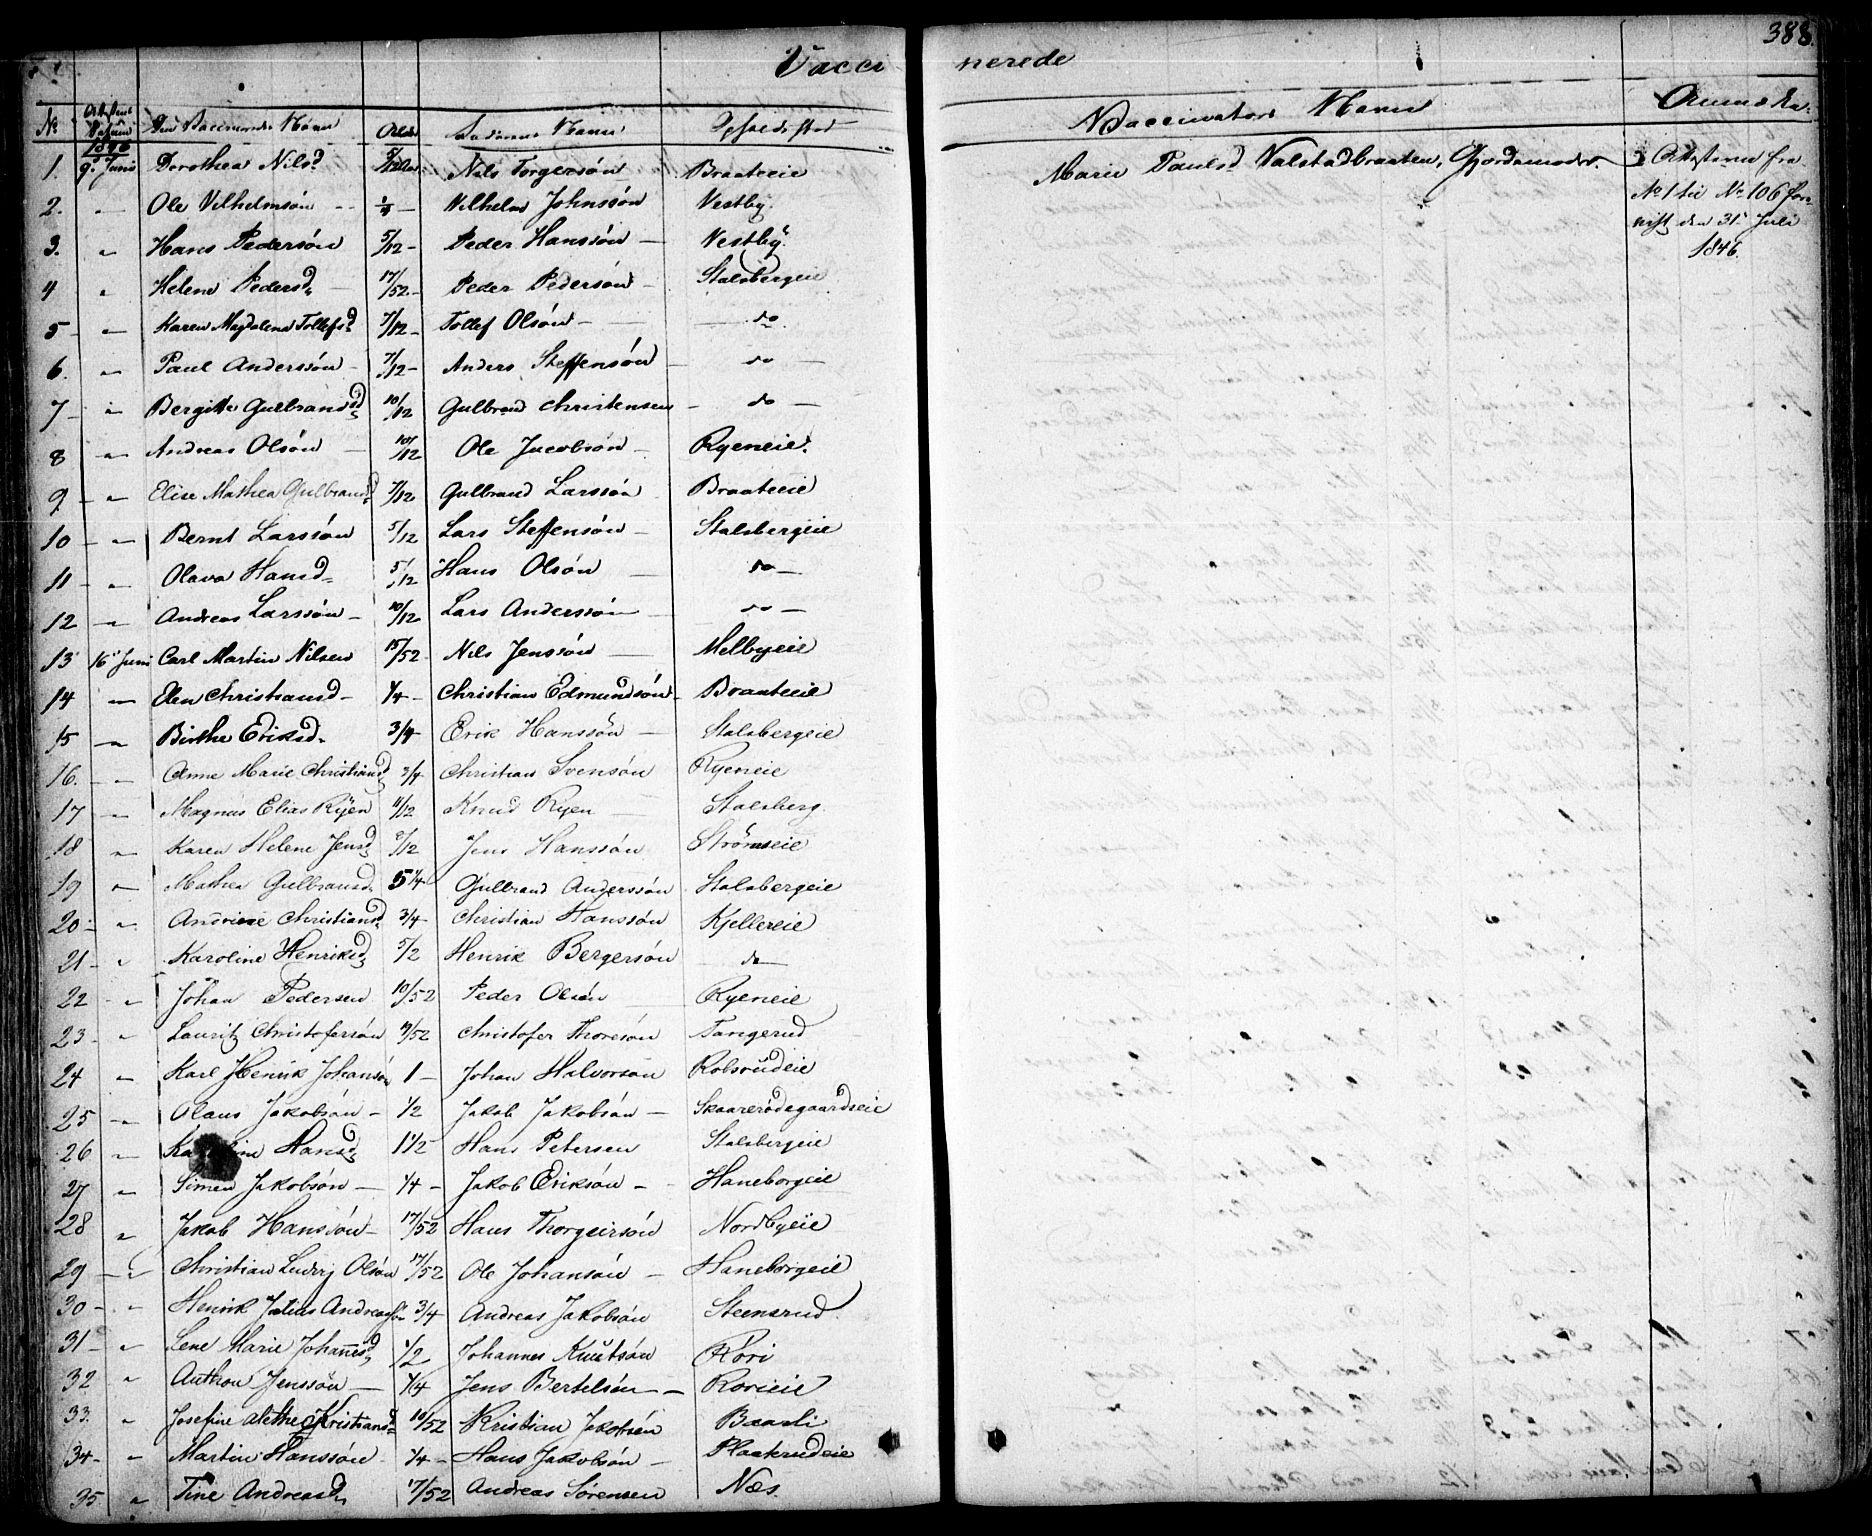 388.
Vaccinerede
No Attestens Datum Den Vaccineredes Navn Alder Faderens Navn Opholdssted Vaccinators Navn Anmærkn.
1846
1. 9de Juni Dorothea Nilsd 5/12 Nils Torgersön Braateeie Marie Paulsd Valstadbraaten, Gjordemoder.
2. " Ole Vilhelmsön 1/4 - Vilhelm Johnssön Vestby.
3. " Hans Pedersön 5/12 - Peder Hanssön - Vestby.
4 " Helene Pedersd. 17/52 - Peder Pedersön - Stalsbergeie
5 - " Karen Magdalena Tollefsd 7/12 - Tollef Olsön - do
6. " Paul Anderssön - 7/12 - Anders Steffensön - do -
7 - " Bergitte Gulbrandsd 10/12 Gulbrand Christensen - do -
8 " Andreas Olsön 10/12 Ole Jacobsön - Ryeneie.
9. - " Elise Mathea Gulbrandsd 7/12 Gulbrand Larssön Braateeie
10 - " Bernt Larssön 5/12 Lars Steffensön - Stalsbergeie
11 - " Olava Hansd - 5/12 Hans Olsön - do -
12 " Andreas Larssön - 10/12 Lars Anderssön do -
13 16de Juni Carl Martin Nilsen 15/52 - Nils Jenssön - Melbyeie
14 " Elen Christiansd - 1/4 - Christian Edmundsön - Braateeie
15 " Birthe Eriksd. 3/4 - Erik Hanssön - Stalsbergeie
16. " Anne Marie Christiansd 3/4 Christian Svensön Ryeneie
17 " Magnus Elias Ryen 11/12 Knud Ryen - Stalsberg.
18 " Karen Helene Jensd /12 Jens Hanssön Strömseie
19 " Mathea Gulbransd. 5 1/4 - Gulbrand Anderssön Stalsbergeie
20 - " Andrine Christiansd 3/4 - Christian Hanssön Kjellereie
21 - " Karoline Henriksd 5/2 Henrik Bergersön do -
22 " Johan Pedersen 10/52 Peder Olsen Ryeneie
23 - " Lauritz Christoferssön /52 Christofer Thoresön Tangerud
24 " Karl Henrik Johansön 1 - Johan Halvorsön Robsrudeie
25 - " Olaus Jakobsön - 1/2 Jakob Jakobsön - Skaarerödsgaardseie
26 " Hansd 1 1/2 - Hans Petersen Stalsbergeie
27 " Simen Jakobsön - 1/4 - Jakob Eriksön - Haneborgeie
28 " Jakob Hanssön - 17/52 Hans Thorgeirsön Nordbyeie
29 - " Christian Ludvig Olsön 17/52 Ole Johansön - Haneborgeie
30 - " Henrik Julius Andreassön 3/4 Andreas Jakobsön Steensrud
31 - " Lene Marie Johannesd 1/2 Johannes Knutsön Rori
32 " Anthon Jenssön - 1/4 Jens Bertelsön - Rorieie
33. " Josefine Alethe Kristiansd 10/52 Kristian Jakobsön Baarli
34 - " Martin Hanssön - 1/4 - Hans Jakobsön - Plaakrudeie
35 " Tine Andreasd. 17/52 Andreas Sörensen Næs.
Attesterne fra
No 1 til No 106
den 31te Juli
1846.